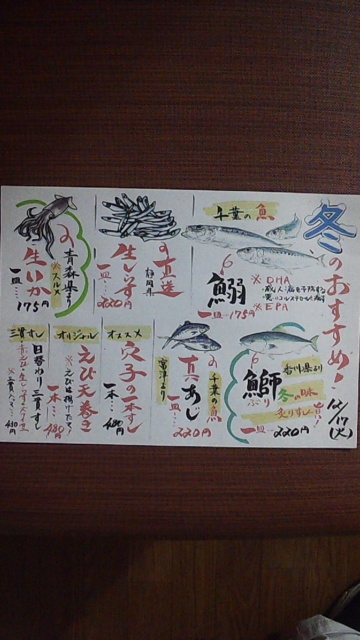 冬のおすすめ!
12/17(火)
千葉の魚
鰯
一皿…175円
※DHA
※EPA
直送
静岡県
生しらす
一皿…220円
青森県より
※スルメ
生いか
一皿…
175円
香川県より
鰤
ぶり
冬の味
炙りすし
旨い!
一皿…220円
千葉の魚
富津より
真あじ
一皿…
220円
オススメ
穴子の一本すし
一本…480円
オリジナル
えび天巻き
※えびは揚げたち!
一本…480円
三貫すし
日替わり三貫すし
三貫で…410円